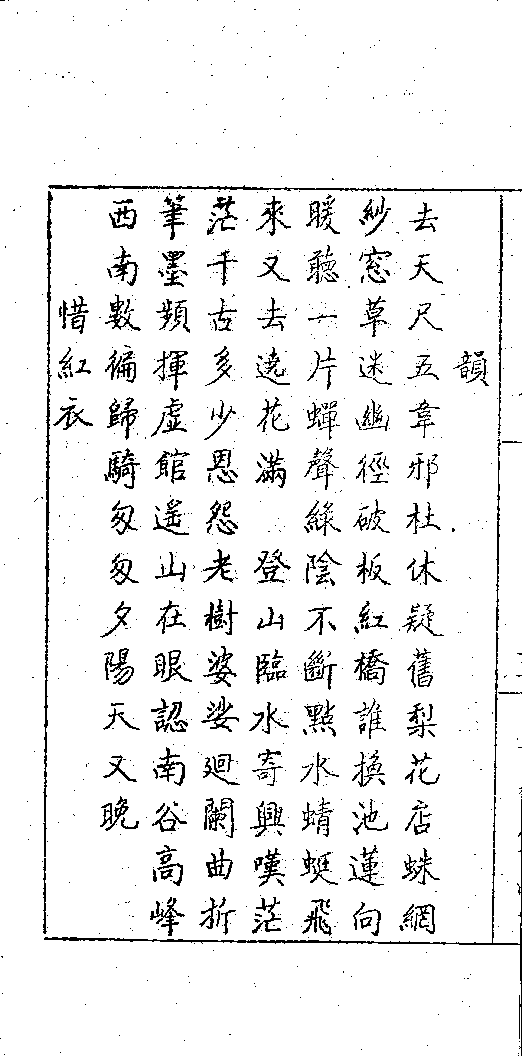 韻
去天尺五韋邪杜休疑舊梨花店蛛網
紗窓草迷幽徑破板紅橋誰換池蓮向
暖聽一片蟬聲綠陰不斷點水蜻蜓飛
來又去遶花滿　登山臨水寄興嘆茫
茫千古多少恩怨老樹婆娑迴闌曲折
筆墨頻揮虛館遙山在眼認南谷高峰
西南數徧歸騎匆匆夕陽天又晚
惜紅衣